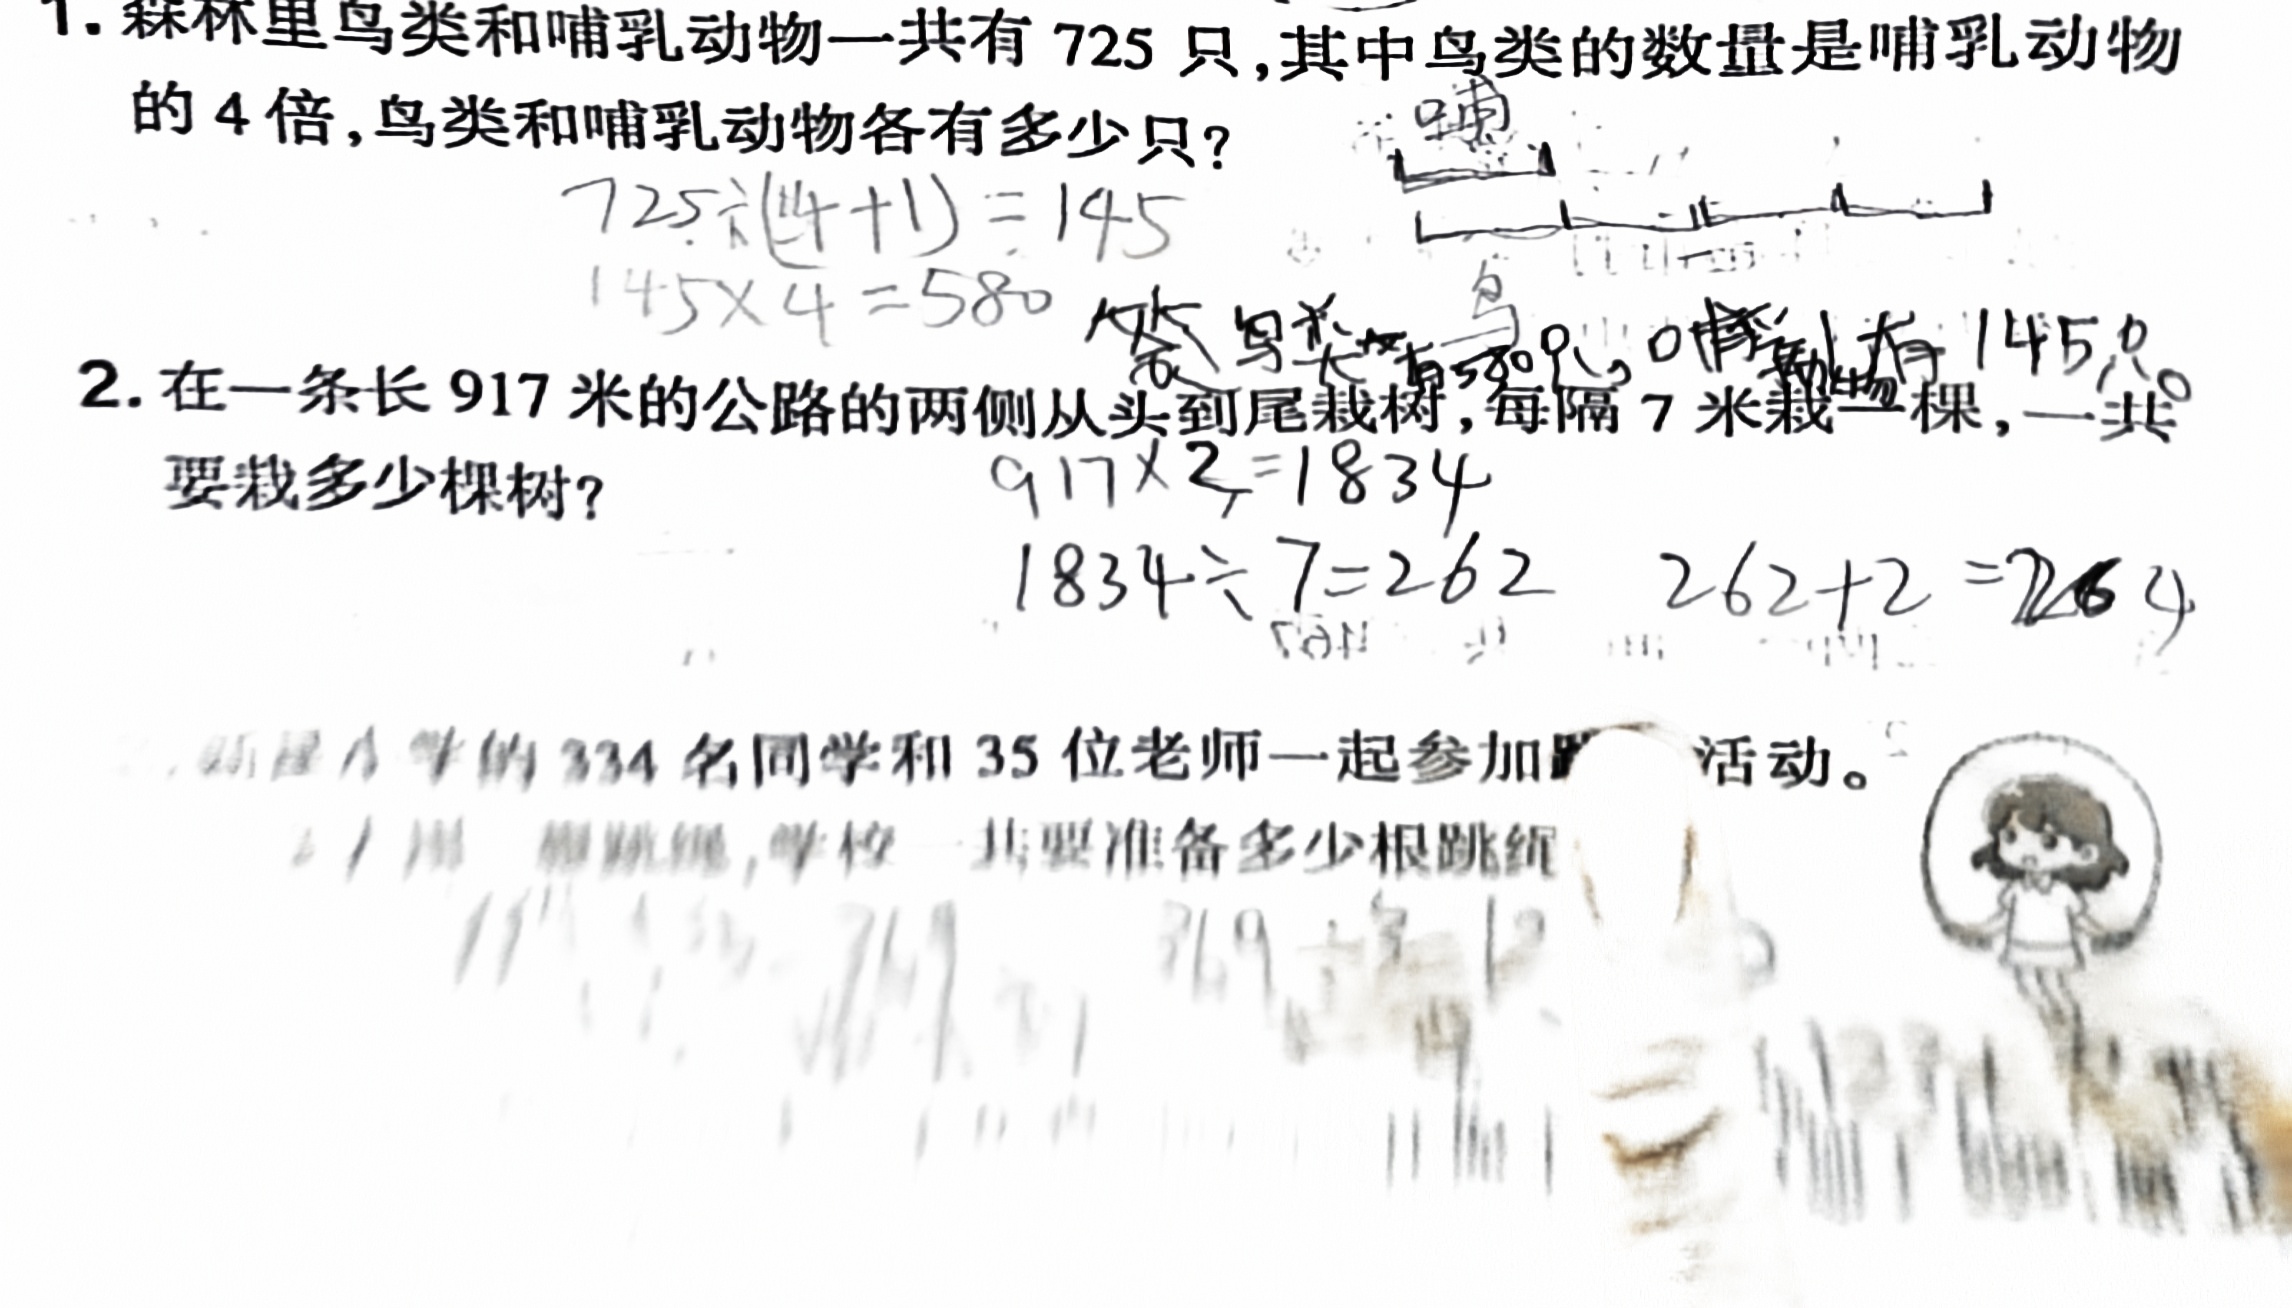 1. 森林里鸟类和哺乳动物一共有 725 只,其中鸟类的数量是哺乳动物
的 4 倍,鸟类和哺乳动物各有多少只?
哺
725÷(4+1)=145
145×4=580
鸟
鸟类有580只, 哺乳动物有145只。
2. 在一条长 917 米的公路的两侧从头到尾栽树,每隔 7 米栽一棵,一共
要栽多少棵树?
917×2=1834
1834÷7=262 262+2=264
小学的 334 名同学和 35 位老师一起参加 活动。
跳绳,学校一共要准备多少根跳绳
369 369÷3